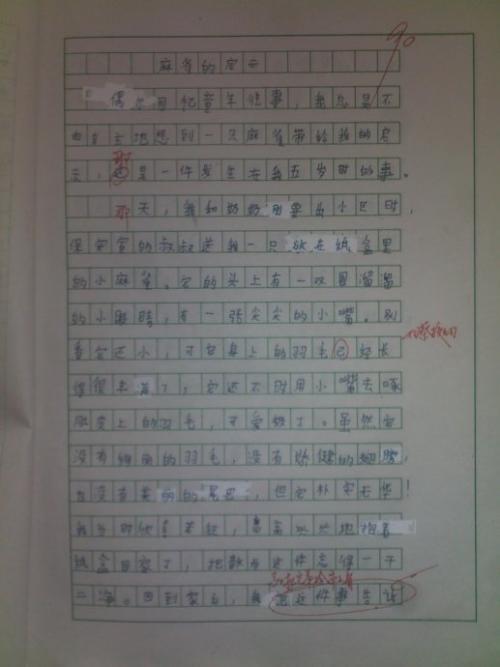 90
麻雀的启示
偶尔回忆童年往事,我总是不
由自主地想到一只麻雀带给我的启
示,那是一件发生在我五岁时的事。
那天,我和奶奶刚要出小区时,
保安室的叔叔送我一只放在纸盒里
的小麻雀。它的头上有一双圆溜溜
的小眼睛,有一张尖尖的小嘴。别
看它还小,可它身上的羽毛已经长
得很丰富了,它还不时用小嘴去啄
脚上的羽毛,可爱极了。虽然它
没有绚丽的羽毛,没有矫健的翅膀,
也没有美丽的尾巴,但它朴实无华!
我当时如,高高兴兴地抱着
纸盒回家了,把散步这件忘得一干
二净。回到家后,我把这件事告诉